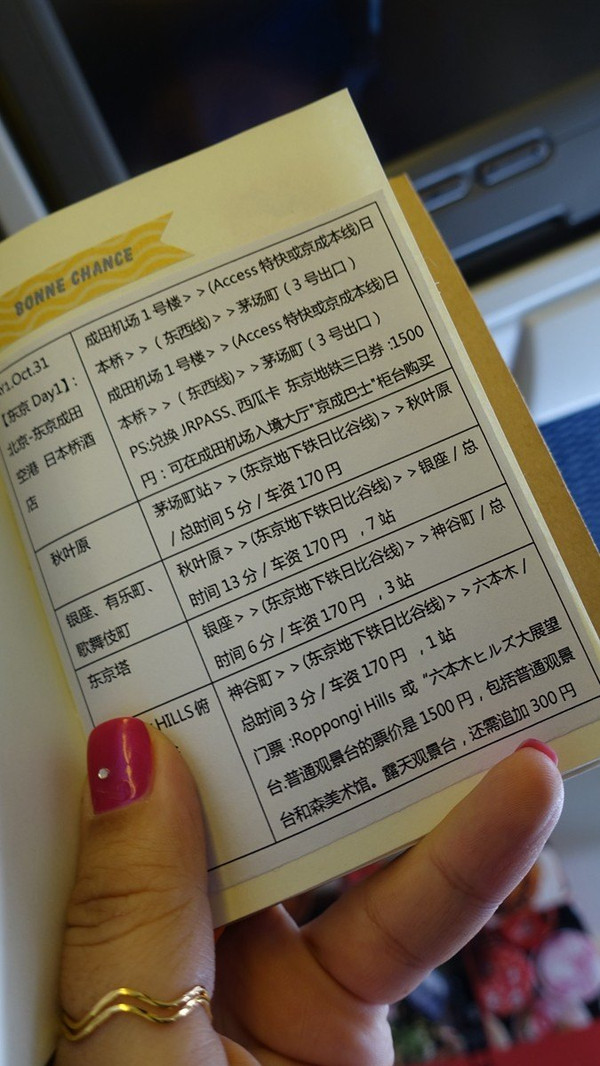 BONNE CHANCE
Y1.Oct.31
【东京 Day1】:
北京-东京成田
空港 日本桥酒
店
成田机场 1 号楼>>(Access 特快或京成本线)日
本桥>>（东西线）>>茅场町（3 号出口）
成田机场 1 号楼>>(Access 特快或京成本线)日
本桥>>（东西线）>>茅场町（3 号出口）
PS:兑换 JRPASS、西瓜卡 东京地铁三日券 :1500
円：可在成田机场入境大厅"京成巴士"柜台购买
秋叶原
茅场町站>>(东京地下铁日比谷线)>>秋叶原
/ 总时间 5 分 / 车资 170 円
银座、有乐町、
歌舞伎町
秋叶原>>(东京地下铁日比谷线)>>银座 / 总
时间 13 分 / 车资 170 円 ，7 站
东京塔
银座>>(东京地下铁日比谷线)>>神谷町 / 总
时间 6 分 / 车资 170 円 ，3 站
HILLS 俯
神谷町>>(东京地下铁日比谷线)>>六本木 /
总时间 3 分 / 车资 170 円 ，1 站
门票 :Roppongi Hills 或 "六本木ヒルズ大展望
台:普通观景台的票价是 1500 円，包括普通观景
台和森美术馆。露天观景台，还需追加 300 円